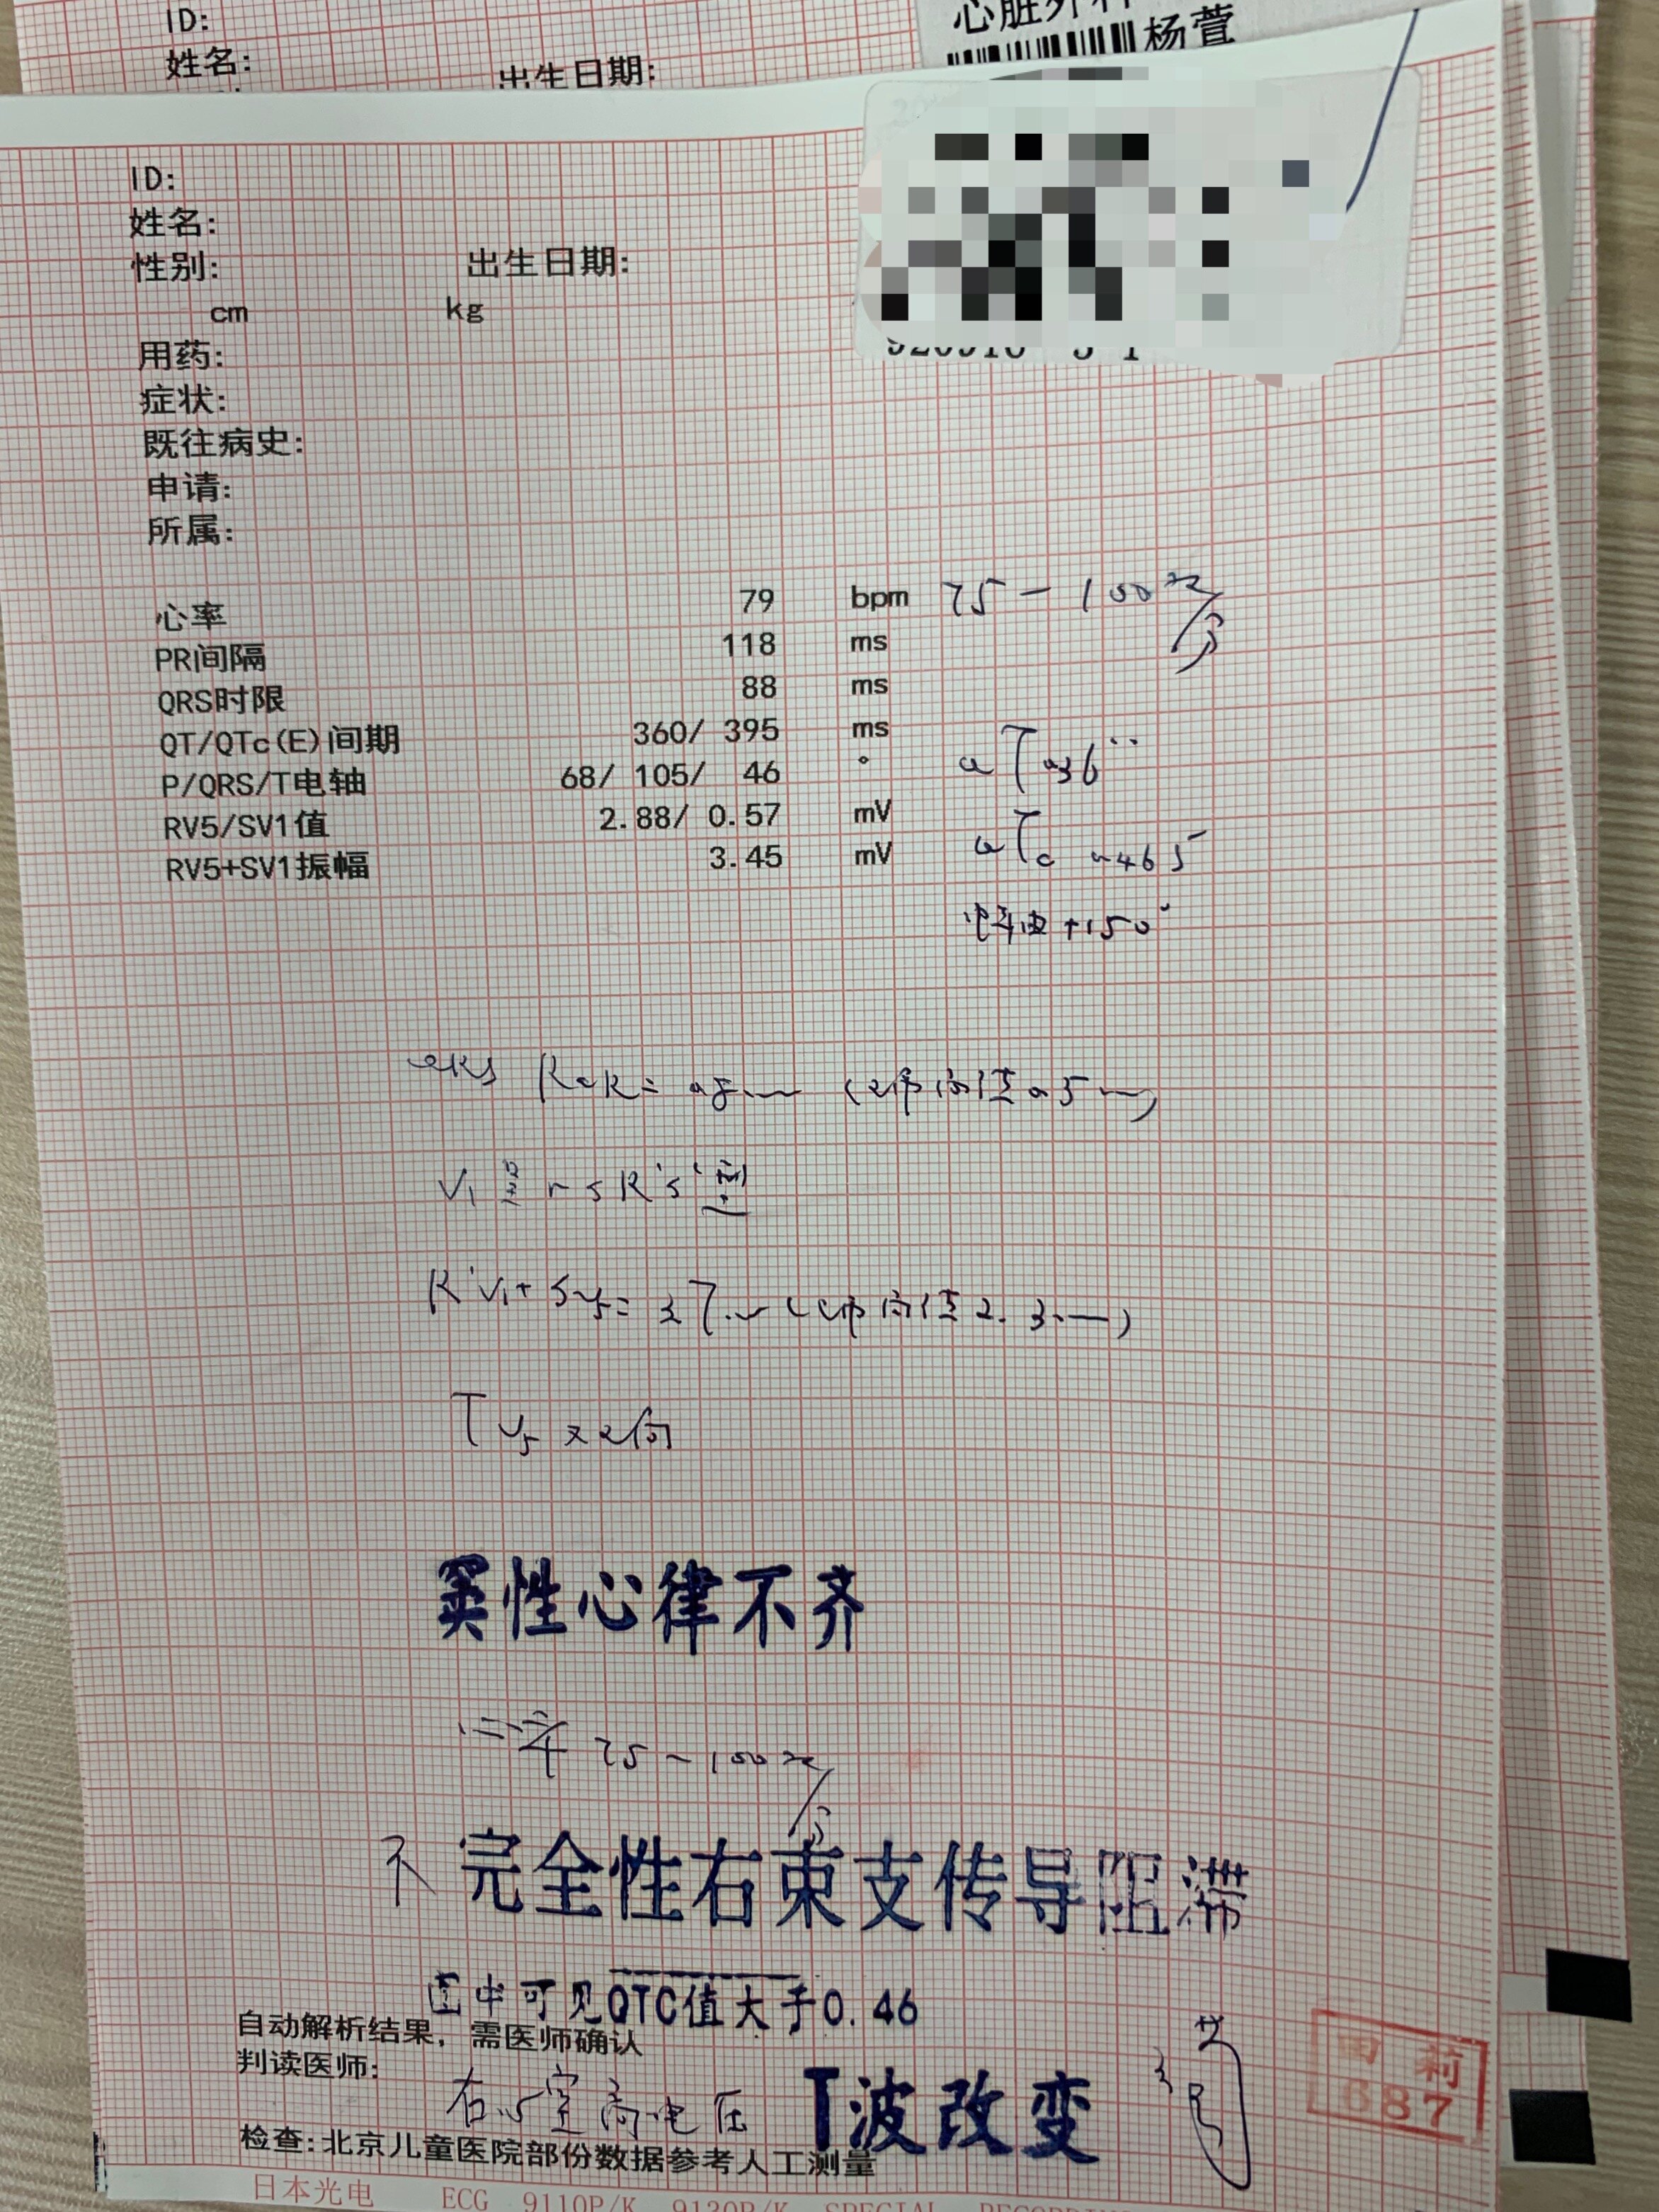 ID:
姓名:
出生日期:
心脏外科
杨萱
ID:
姓名:
性别:
出生日期:
cm kg
用药:
症状:
既往病史:
申请:
所属:
心率 79 bpm 75-100次/分
PR间隔 118 ms
QRS时限 88 ms
QT/QTc(E)间期 360/ 395 ms
P/QRS/T电轴 68/ 105/ 46 °
QT 0.36
RV5/SV1值 2.88/ 0.57 mV
RV5+SV1振幅 3.45 mV
QTc 0.465
电轴 +150°
QRS RaVR=
V1呈rsR's'型
R'V1+SV5=
TV5双向
窦性心律不齐
心率 75-100次/分
不完全性右束支传导阻滞
图中可见QTC值大于0.46
自动解析结果, 需医师确认
判读医师:
右心室高电压 T波改变
田莉
687
检查:北京儿童医院部份数据参考人工测量
日本光电 ECG 9110P/K 9130P/K SPECIAL